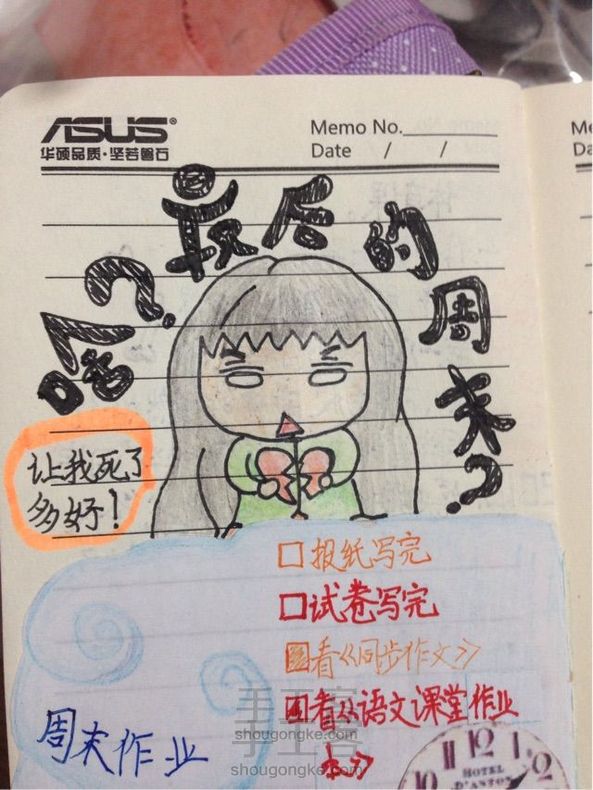 ASUS
华硕品质·坚若磐石
Memo No.
Date / /
啥？最后的周末？
让我死了
多好！
报纸写完
试卷写完
看《同步作文》
看《语文课堂作业
本》
周末作业
手工客
shougongke.com
手工客
shougongke.com
HOTEL
D'ANTON
Me
Da